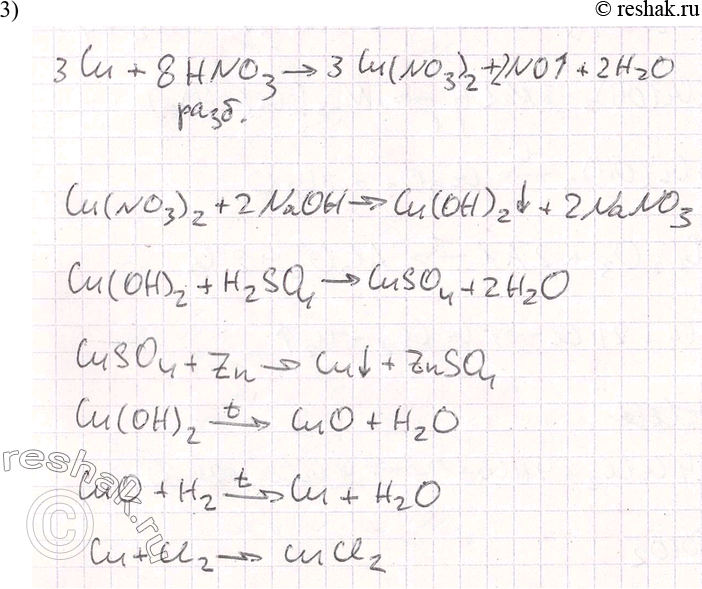 © reshak.ru
3)
3Cu + 8HNO₃ → 3Cu(NO₃)₂ + 2NO↑ + 2H₂O
разб.
Cu(NO₃)₂ + 2NaOH → Cu(OH)₂↓ + 2NaNO₃
Cu(OH)₂ + H₂SO₄ → CuSO₄ + 2H₂O
CuSO₄ + Zn → Cu↓ + ZnSO₄
Cu(OH)₂ →t CuO + H₂O
CuO + H₂ →t Cu + H₂O
Cu + Cl₂ → CuCl₂
reshak.ru
©